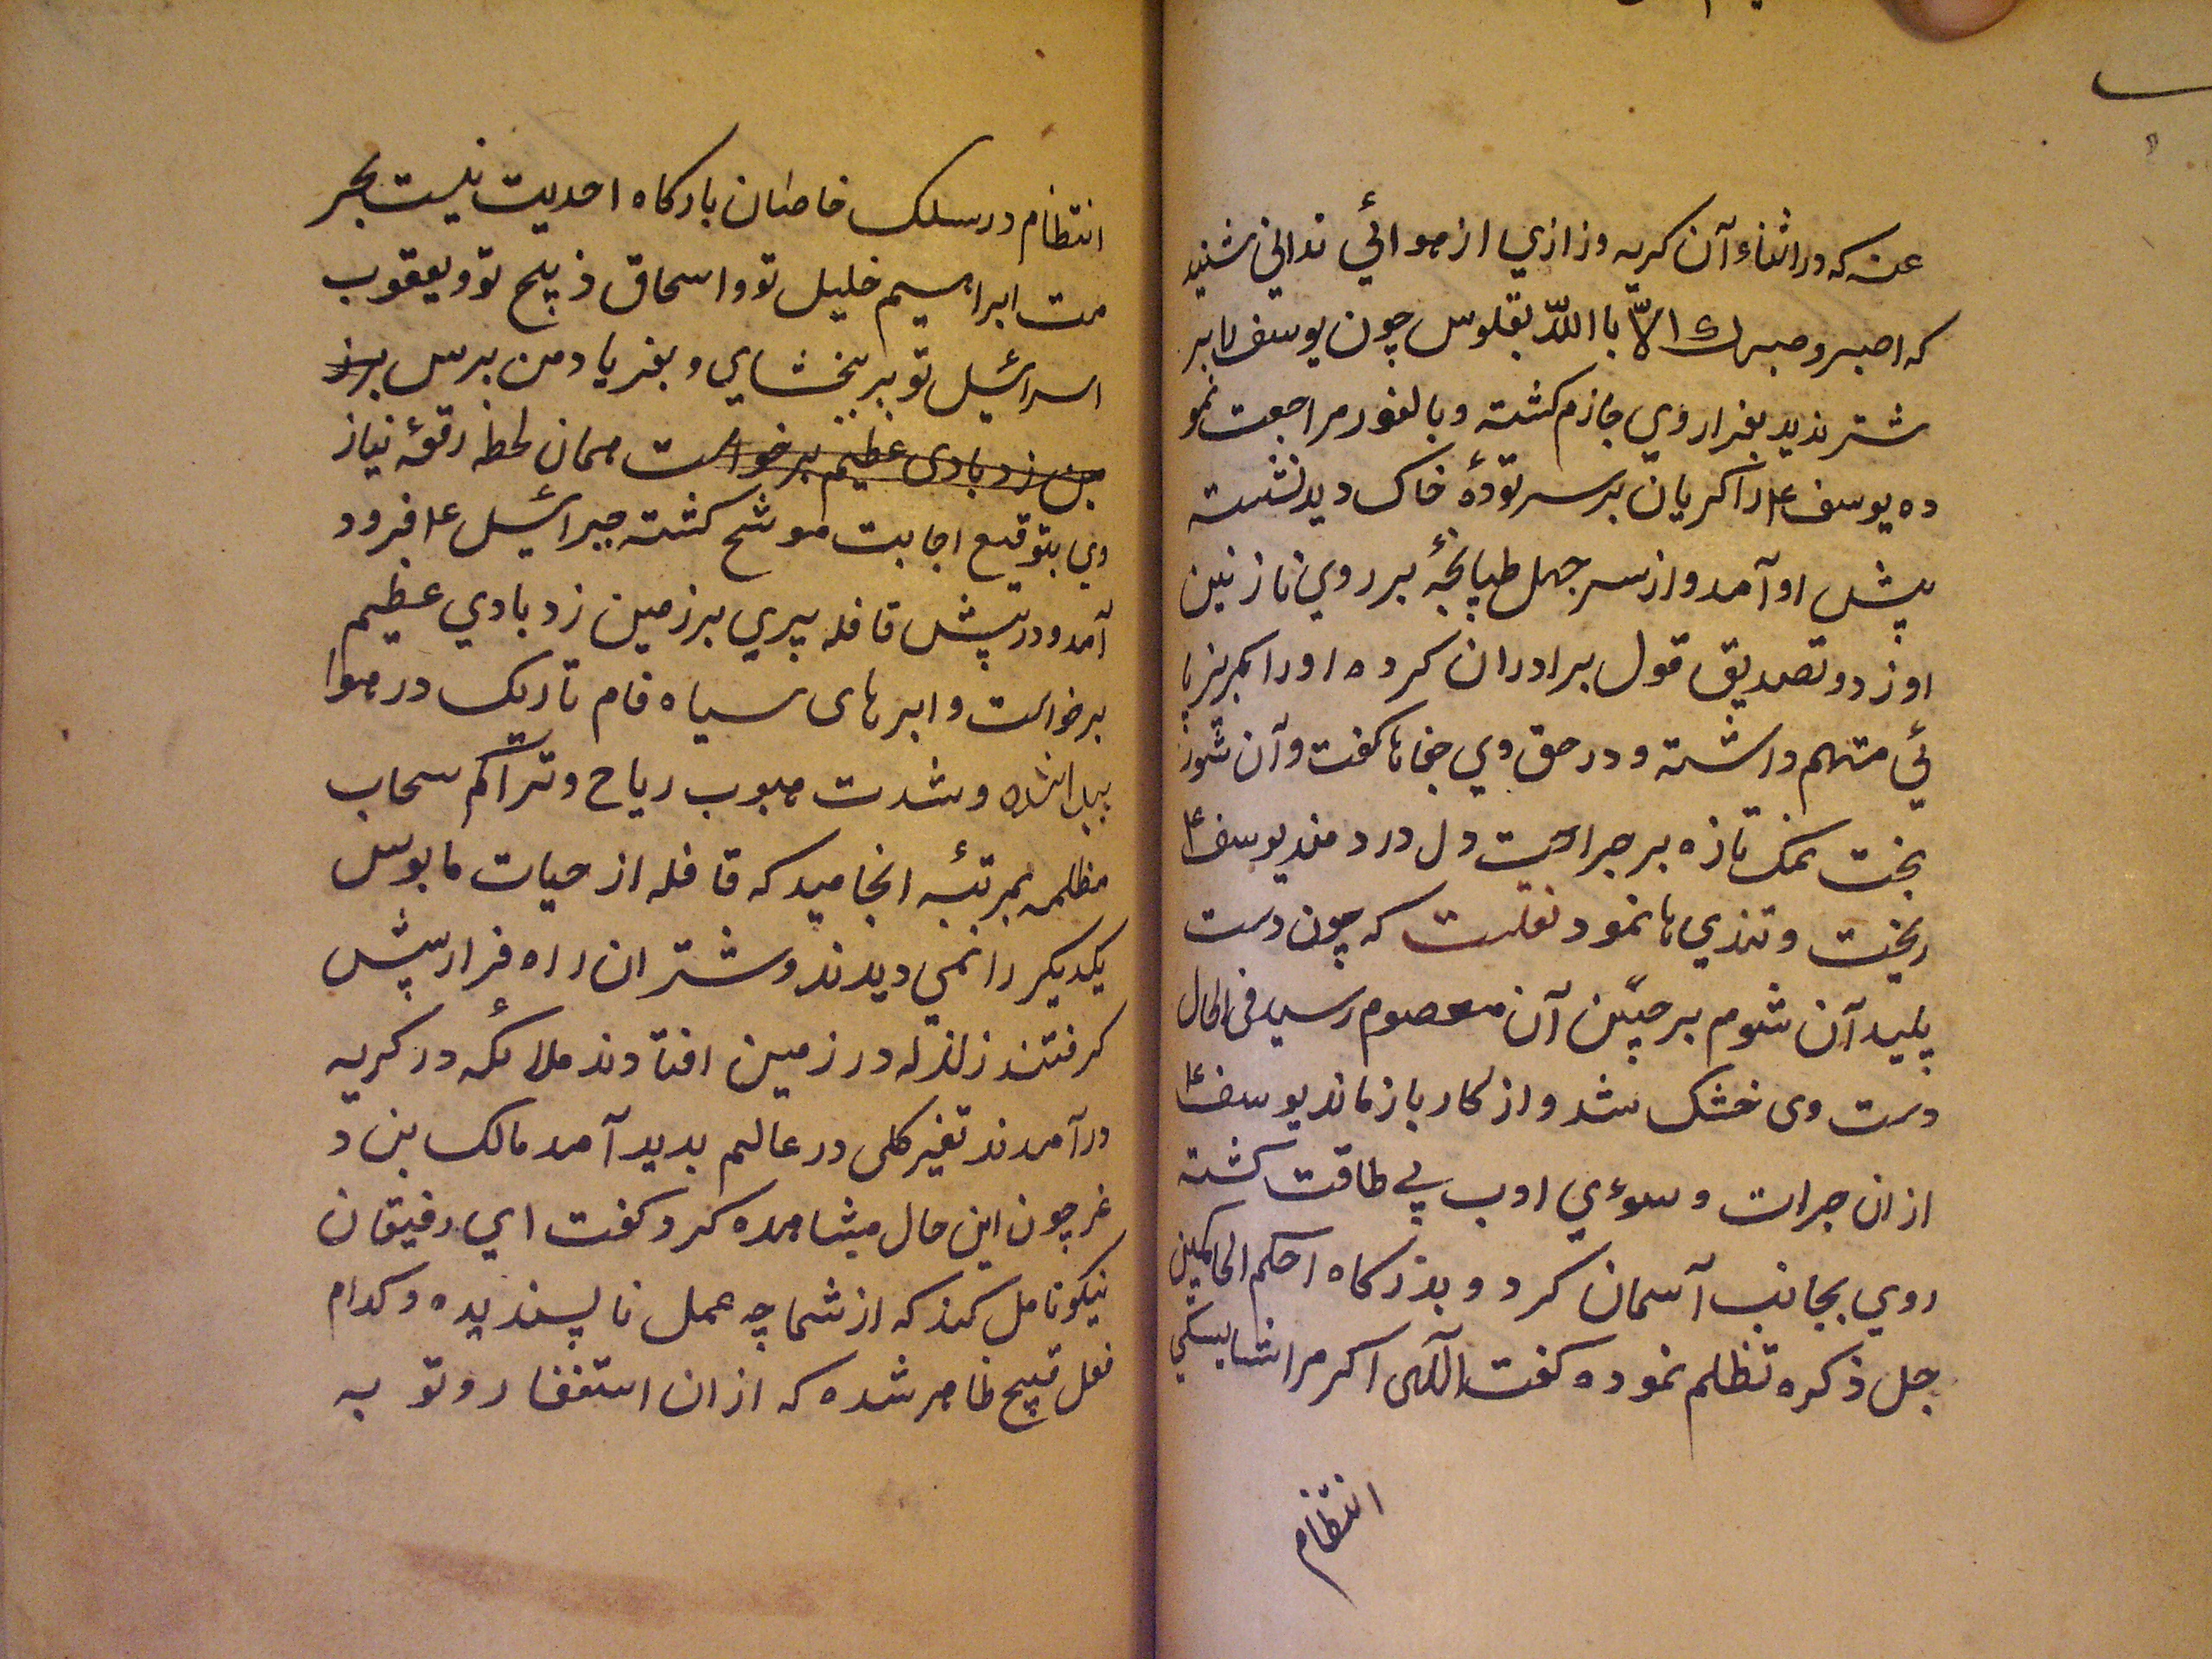 عنه که در اثناء آن کریه وزازي از هوائي ندائي شنید
که اصبر و صبرك الّا باالله بقلوس چون یوسف را بر
شتر ندید بفرار وي جازم کشته و بالفور مراجعت نمو
ده یوسف ع را کریان بر سر تودهٔ خاک دید نشسته
پیش او آمد و از سر جهل طپانچهٔ بر روي نازنین
او زد و تصدیق قول برادران کرده او را بکریز پا
ئي متهم داشته و در حق وي جفاها کفت و آن شور
بخت نمک تازه بر جراحت دل دردمند یوسف ع
ریخت و تندي ها نمود نقلست که چون دست
پلید آن شوم بر جبین آن معصوم رسید فی الحال
دست وی خشک شد و از کار باز ماند یوسف ع
ازان جرات و سوءي ادب بي طاقت کشته
روي بجانب آسمان کرد و بدرکاه احکم الحاکمین
جل ذکره تظلم نموده کفت الٓهی اکر مرا شایستکي
انتظام
انتظام در سلک خاصان بارکاه احدیت نیست بحر
مت ابراهیم خلیل تو و اسحاق ذبیح تو و یعقوب
اسرائیل تو بر ببخشاي و بفریاد من برس برز
مین زد بادی عظیم برخواست همان لحظه رقعهٔ نیاز
وي بتوقیع اجابت موشح کشته جبرائیل ع فرود
آمد و در پیش قافله پري بر زمین زد بادي عظیم
برخواست و ابرهای سیاه فام تاریک در هوا
پیدا شده و شدت هبوب ریاح و تراکم سحاب
مظلمه بمرتبهٔ انجامید که قافله از حیات مایوس
یکدیکر را نمي دیدند و شتران راه فرار پیش
کرفتند زلزله در زمین افتادند ملائکه در کریه
درآمدند تغیر کلی در عالم بدید آمد مالک بن د
غر چون این حال مشاهده کرد کفت اي رفیقان
نیکو تامل کنند که از شما چه عمل ناپسندیده و کدام
فعل قبیح ظاهر شده که ازان استغفار و توبه